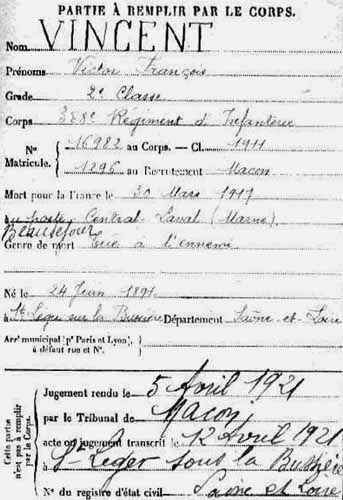 PARTIE À REMPLIR PAR LE CORPS.
Nom VINCENT
Prénoms Victor François
Grade 2e Classe
Corps 358e Régiment d'Infanterie
N° 16982 au Corps. — Cl. 1911
Matricule. 1296 au Recrutement Macon
Mort pour la France le 30 Mars 1917
au poste Central-Laval (Marne)
Beauséjour
Genre de mort Tué à l'ennemi
Né le 24 Juin 1891
à St Leger sur la Bussière Département Saône-et-Loire
Arrt municipal (pr Paris et Lyon), à défaut rue et N°.
Cette partie n'est pas à remplir par le Corps.
Jugement rendu le 5 Avril 1921
par le Tribunal de Macon
acte ou jugement transcrit le 12 Avril 1921
à St Leger sous la Bussière
Saône et Loire
N° du registre d'état civil